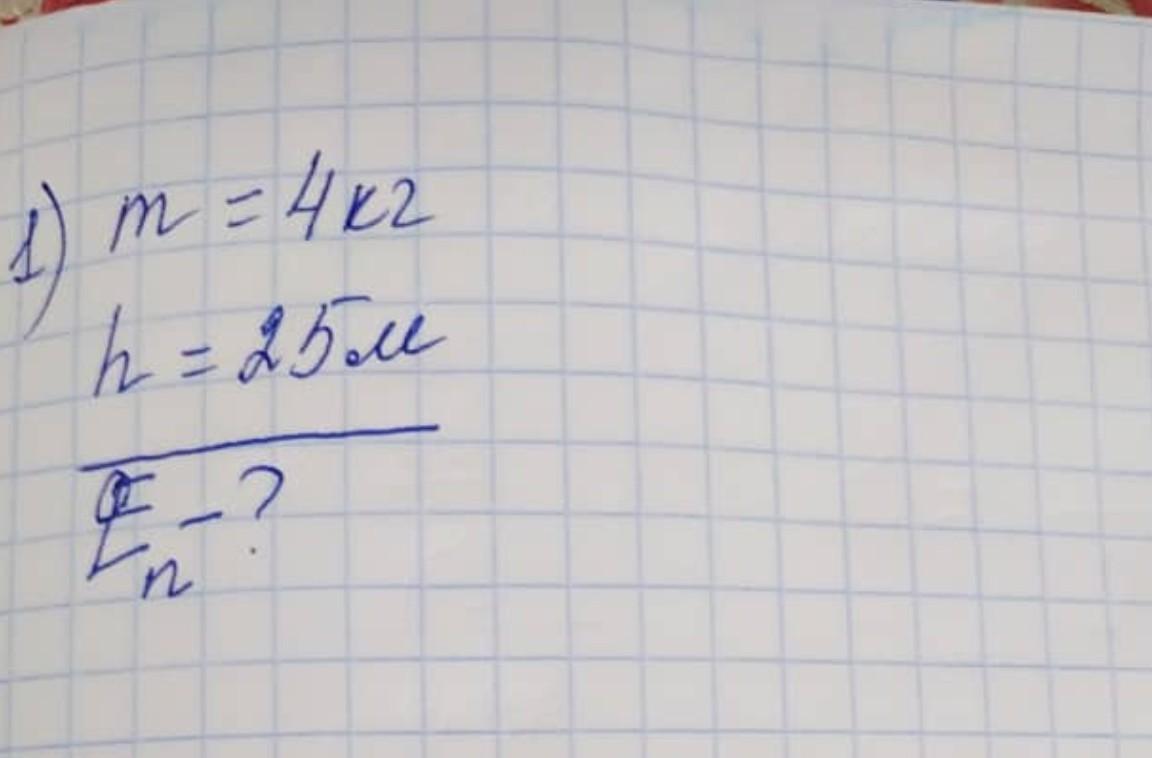 1) m = 4 кг
h = 25 м
Eп - ?